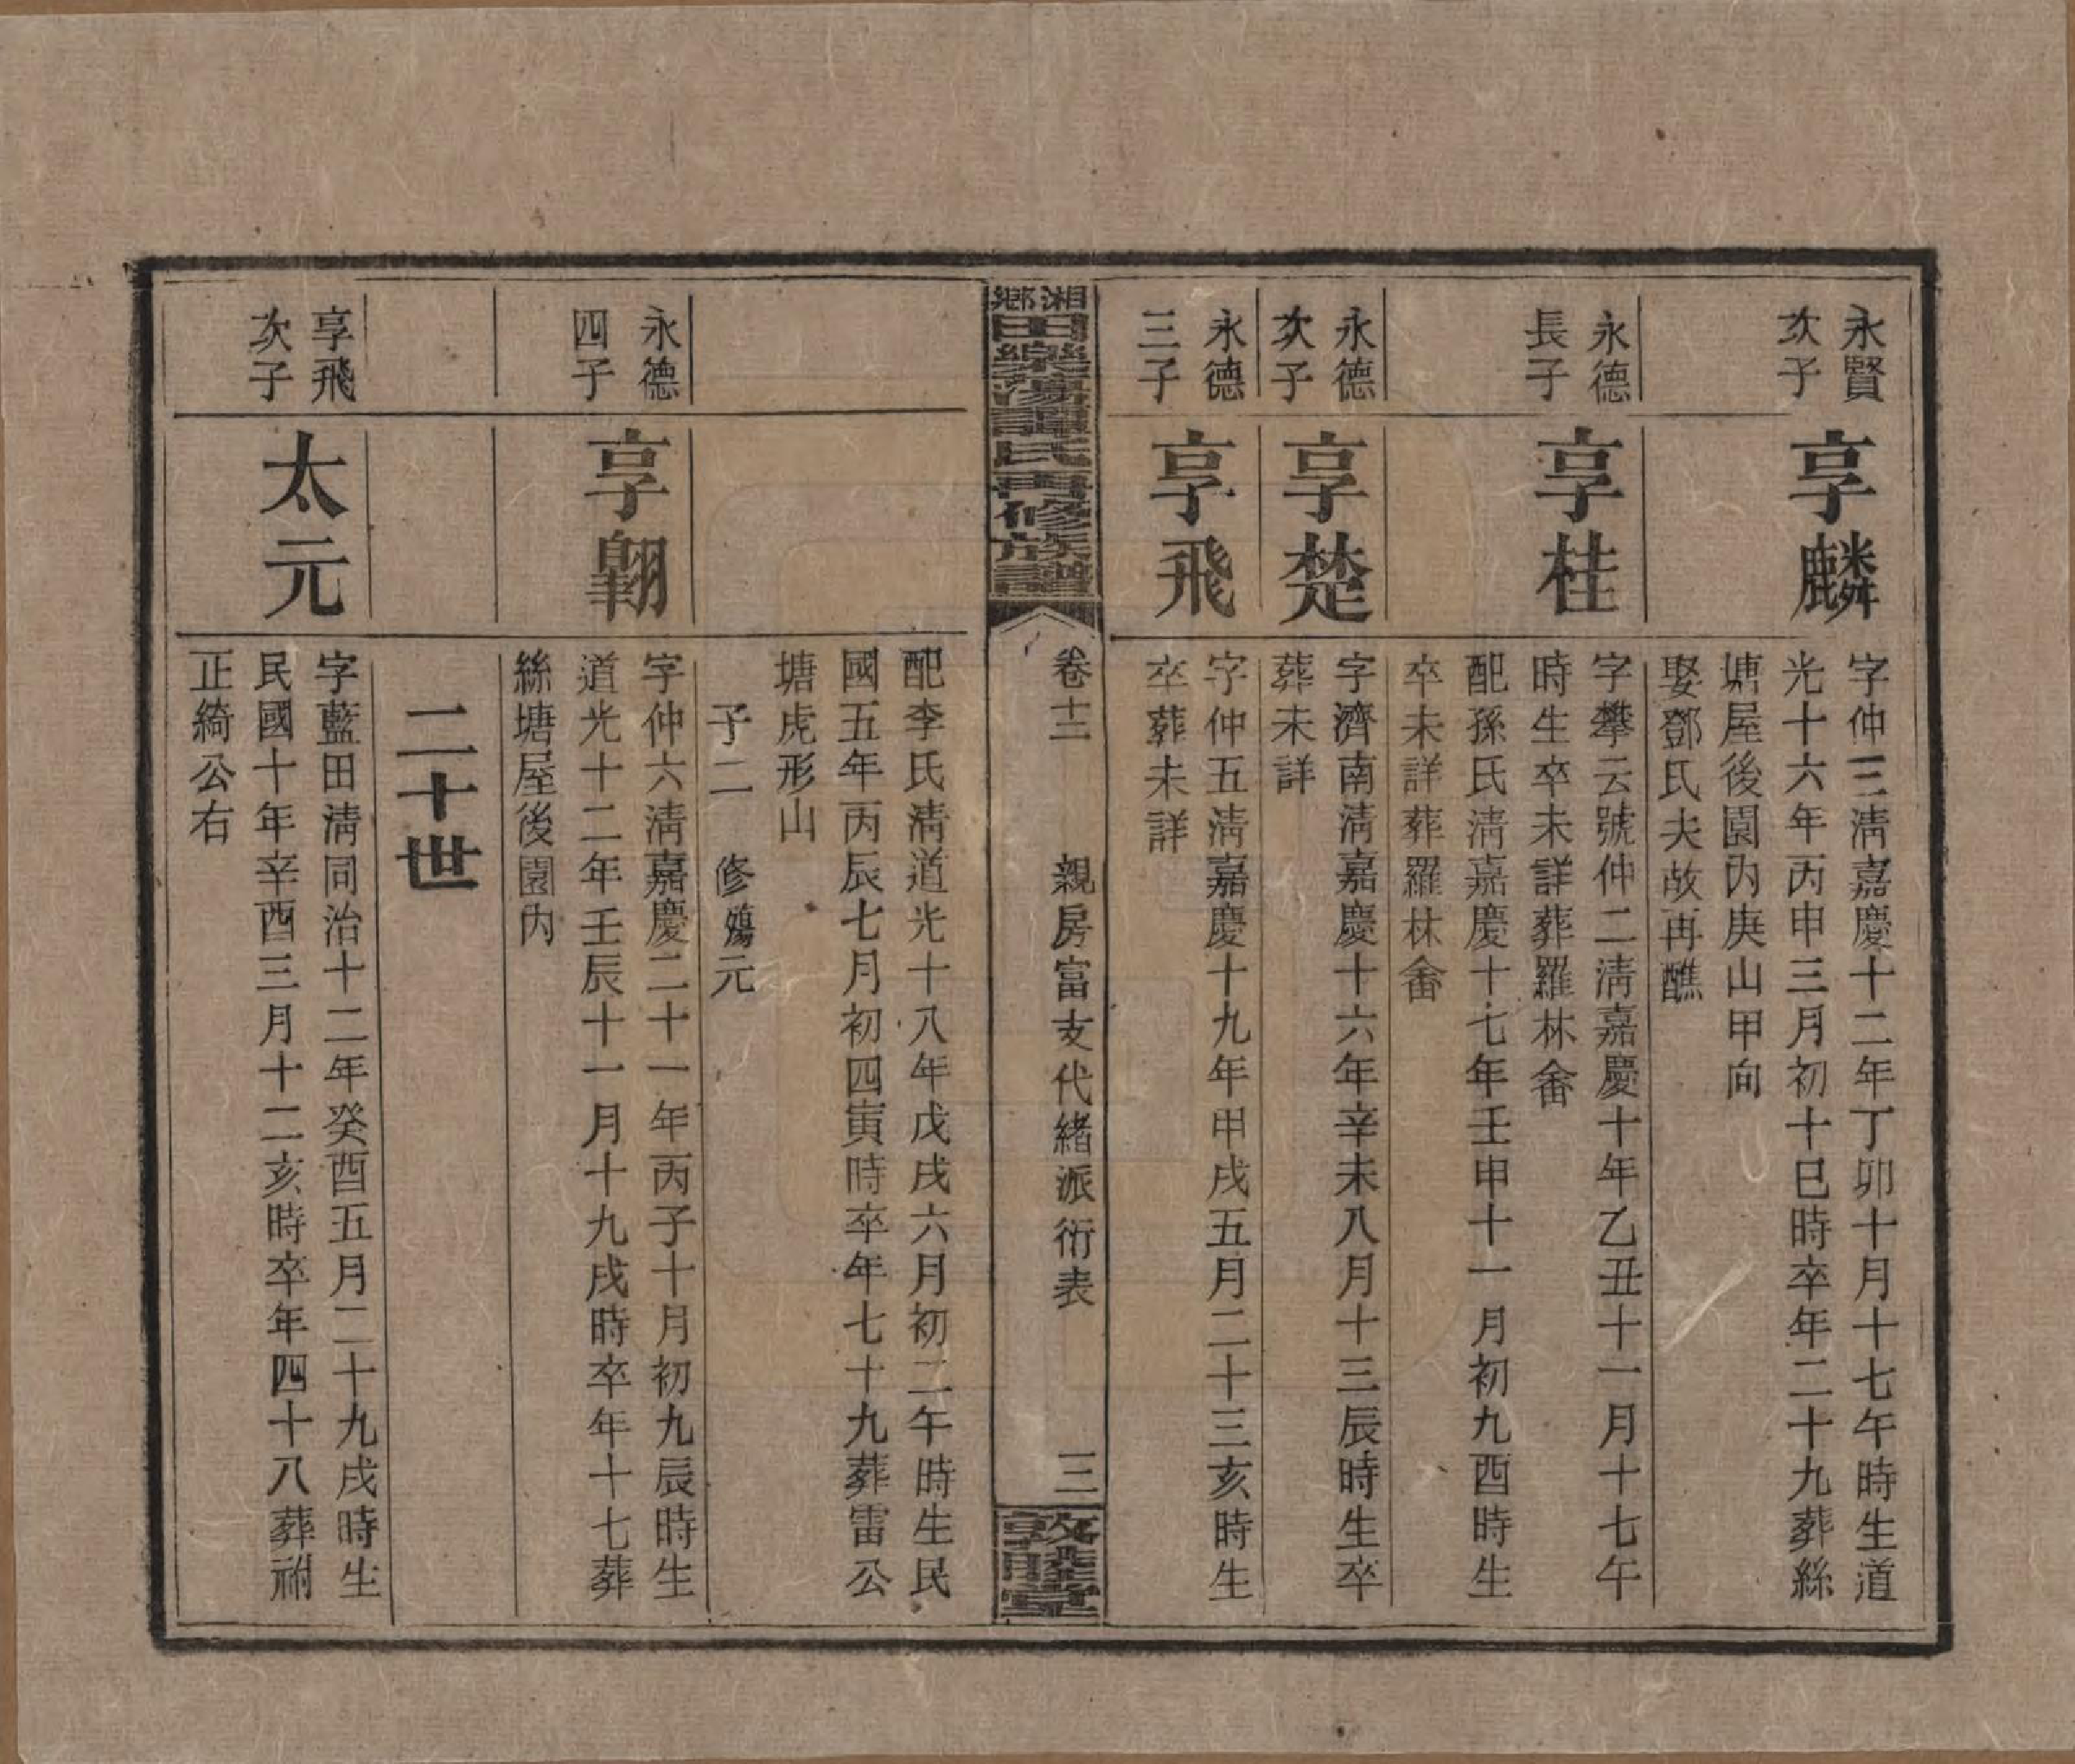 永賢
次子
享麟
字仲三淸嘉慶十二年丁卯十月十七午時生道
光十六年丙申三月初十巳時卒年二十九葬絲
塘屋後園內庚山甲向
娶鄧氏夫故再醮
永德
長子
享桂
字攀云號仲二淸嘉慶十年乙丑十一月十七午
時生卒未詳葬羅林畬
配孫氏淸嘉慶十七年壬申十一月初九酉時生
卒未詳葬羅林畬
永德
次子
享楚
字濟南淸嘉慶十六年辛未八月十三辰時生卒
葬未詳
永德
三子
享飛
字仲五淸嘉慶十九年甲戌五月二十三亥時生
卒葬未詳
湘鄉田樂湯譚氏再修族譜
卷十二 親房富支代緒派衍表 三
敦睦堂
配李氏淸道光十八年戊戌六月初二午時生民
國五年丙辰七月初四寅時卒年七十九葬雷公
塘虎形山
子二 修殤元
永德
四子
享翺
字仲六淸嘉慶二十一年丙子十月初九辰時生
道光十二年壬辰十一月十九戌時卒年十七葬
絲塘屋後園內
二十世
享飛
次子
太元
字藍田淸同治十二年癸酉五月二十九戌時生
民國十年辛酉三月十二亥時卒年四十八葬祔
正綺公右